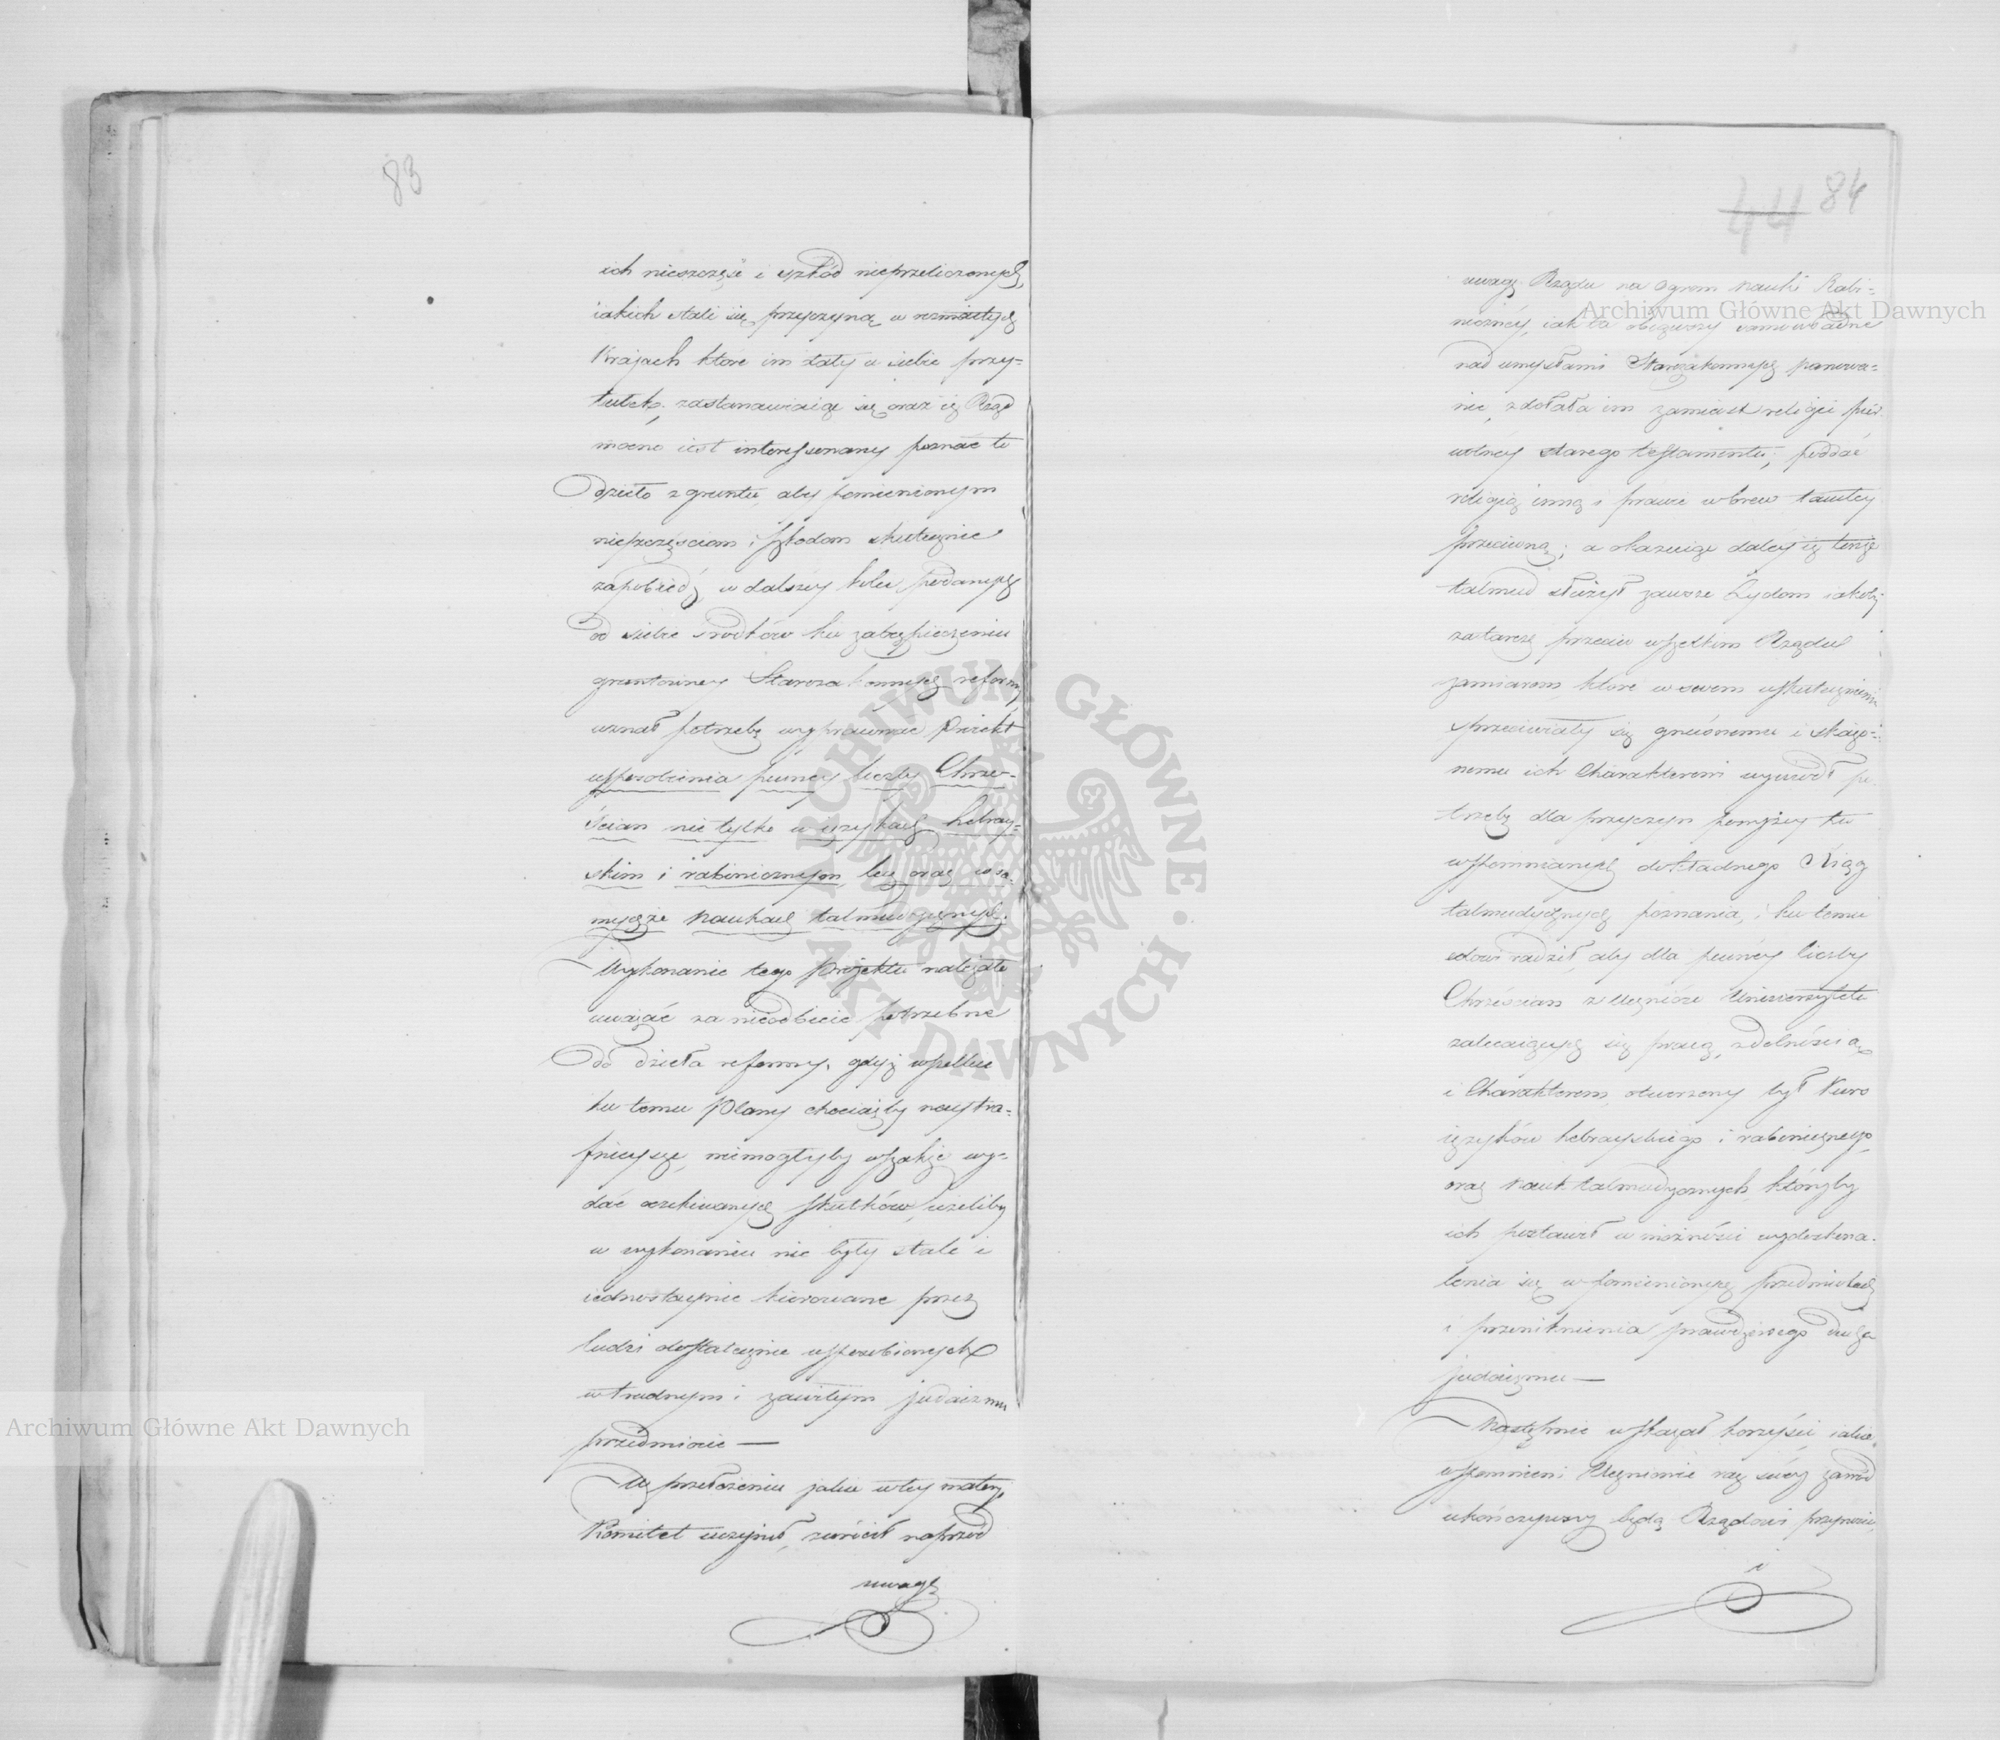 83
ich nieszczęść i szkód nieprzeliczonych,
iakich stali się przyczyną w rozmaitych
Krajach które im dały u siebie przy-
tułek; zastanawiaiąc się oraz iż Rząd
mocno iest interessowany poznać to
dzieło z gruntu, aby pomienionym
nieszczęściom i szkodom skutecznie
zapobiedz, w dalszey kolei podanych
od siebie srodków ku zabezpieczeniu
gruntowney Starozakonnych reformy
uznał potrzebę wypracować Proiekt
usposobienia pewney liczby Chrze-
ścian nie tylko w ięzykach hebray-
skim i rabinicznym, lecz oraz w sa-
mychże naukach talmudycznych.
Wykonanie tego Projektu należało
uważać za nieodbicie potrzebne
do dzieła reformy, gdyż wszelkie
ku temu Plany chociażby naytra-
fnieysze, niemogłyby wszakże wy-
dać oczekiwanych skutków, ieżeliby
w wykonaniu nie były stale i
iednostaynie kierowane przez
ludzi dostatecznie usposobionych
w trudnym i zawiłym judaizmu
przedmiocie —
W przełożeniu jakie w tey mater.
Komitet uczynił, zwrócił naprzód
uwagę
44 84
uwagę Rządu na ogrom nauki Rabi-
niczney, iak ta samowładne
nad umysłami Starozakonnych panowa-
nie, zdołała im zamiast religii pier
wotney starego testamentu, poddać
religią inną i prawie wbrew tamtey
przeciwną; a okazuiąc daley iż tenże
talmud służył zawsze Żydom iakoby
za tarczę przeciw wszelkim Rządu
zamiarom, które w swem uskutecznieniu
sprzeciwiały się gnuśnemu i skażo-
nemu ich Charakterowi wywiódł po
trzebę dla przyczyn powyżey ku
wspomnianych dokładnego Xiąg
talmudycznych poznania, i ku temu
celowi radził, aby dla pewney liczby
Chrześcian z Uczniów Uniwersytetu
zalecaiących się pracą, zdolnością
i Charakterem, otworzony był Kurs
ięzyków hebrayskiego i rabinicznego,
oraz nauk talmudycznych, któryby
ich postawił w możności wydoskona-
lenia się w pomienionych przedmiotach
i przeniknienia prawdziwego ducha
judaizmu —
Następnie wskazał korzyści, iakie
wspomnieni Uczniowie raz swóy zawód
ukończywszy będą Rządowi przynosić,
i
Archiwum Główne Akt Dawnych
Archiwum Główne Akt Dawnych
ARCHIWUM GŁÓWNE · AKT DAWNYCH ·